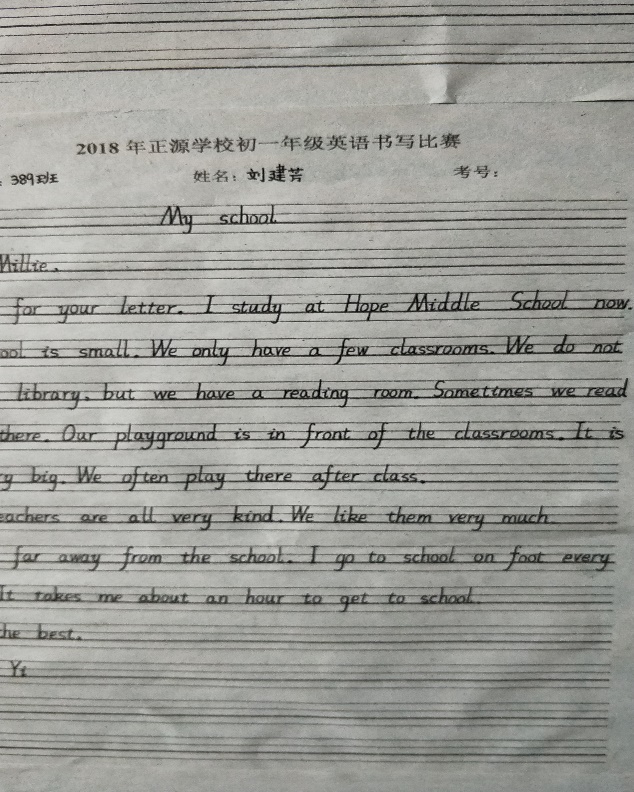 2018 年正源学校初一年级英语书写比赛
: 389班 姓名: 刘建芳 考号:
My school
Millie.
for your letter. I study at Hope Middle School now.
ool is small. We only have a few classrooms. We do not
library, but we have a reading room. Sometimes we read
there. Our playground is in front of the classrooms. It is
y big. We often play there after class.
eachers are all very kind. We like them very much
far away from the school. I go to school on foot every
It takes me about an hour to get to school.
he best.
Yi